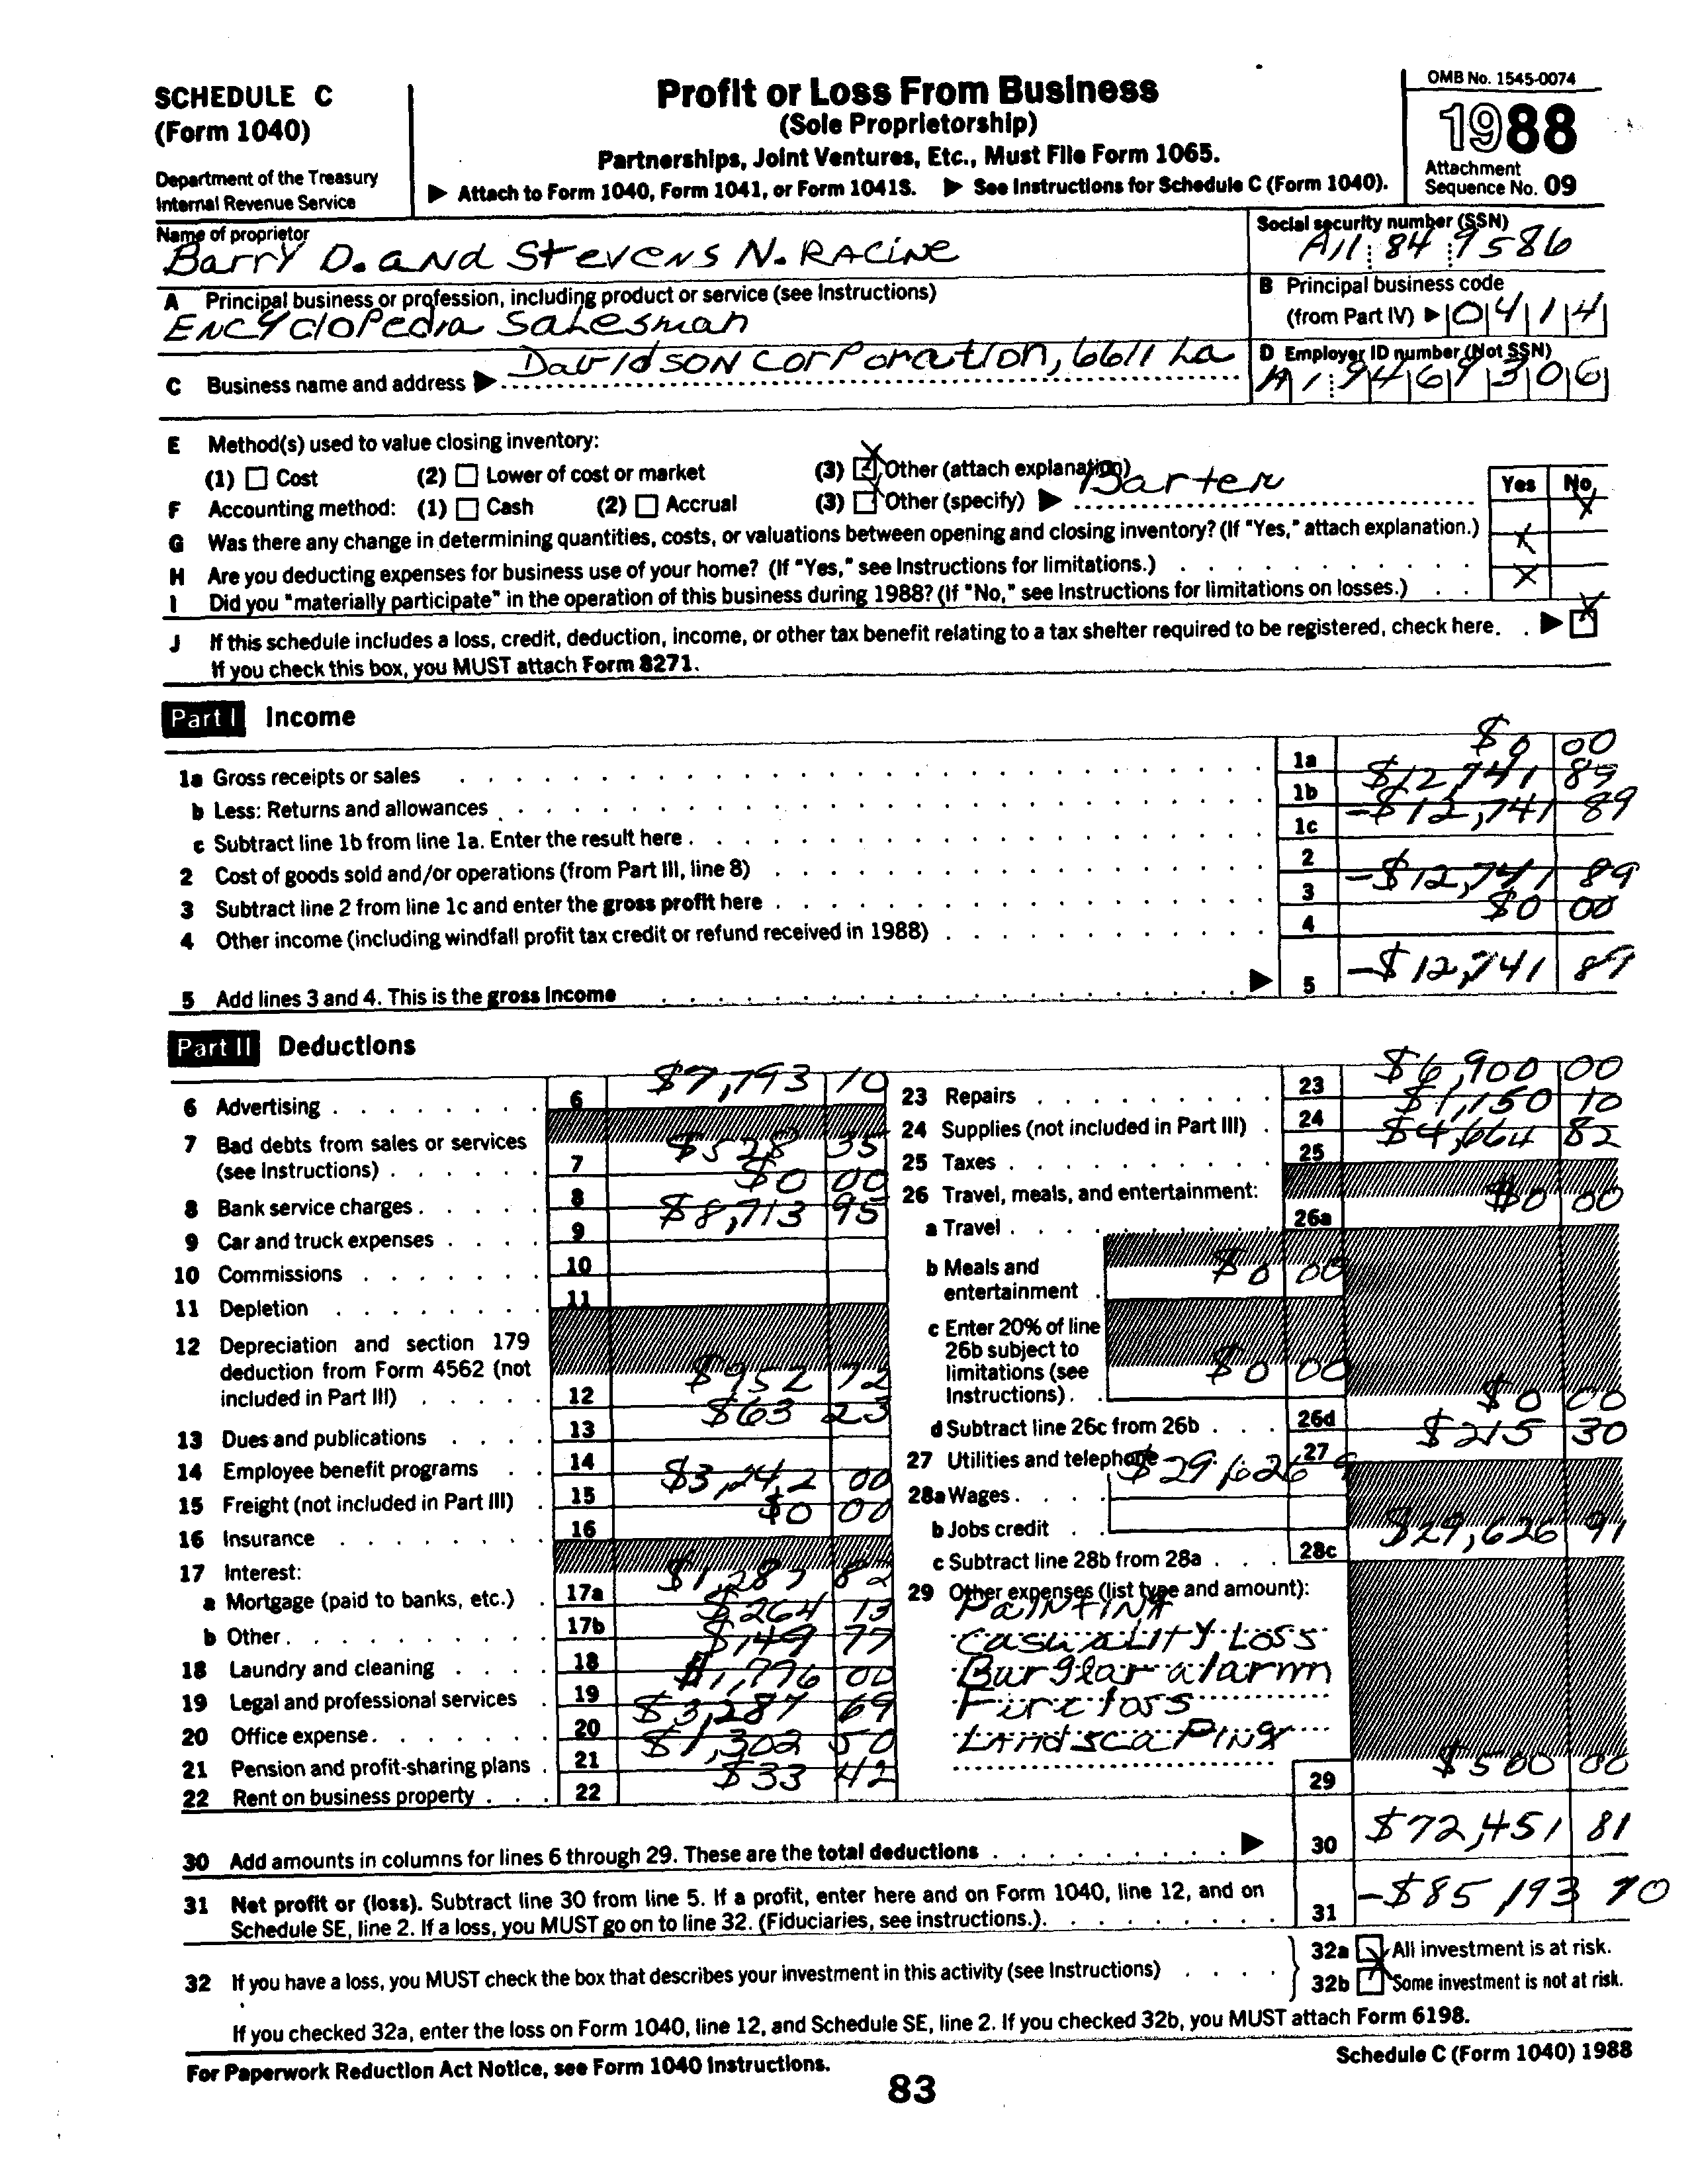 SCHEDULE C
(Form 1040)
Department of the Treasury
Internal Revenue Service
Profit or Loss From Business
(Sole Proprietorship)
Partnerships, Joint Ventures, Etc., Must File Form 1065.
▶ Attach to Form 1040, Form 1041, or Form 1041S. ▶ See Instructions for Schedule C (Form 1040).
OMB No. 1545-0074
1988
Attachment
Sequence No. 09
Name of proprietor
Barry D. and Stevens N. RACINE
Social security number (SSN)
A11 84 9586
A Principal business or profession, including product or service (see Instructions)
ENCYcloPedia Salesman
B Principal business code
(from Part IV) ▶ 0414
C Business name and address ▶ Davidson Corporation, 6611 La
D Employer ID number (Not SSN)
A1 9469306
E Method(s) used to value closing inventory:
(1) Cost (2) Lower of cost or market (3) X Other (attach explanation)
F Accounting method: (1) Cash (2) Accrual (3) Other (specify) ▶ Barter
Yes No
G Was there any change in determining quantities, costs, or valuations between opening and closing inventory? (If "Yes," attach explanation.) X
H Are you deducting expenses for business use of your home? (If "Yes," see Instructions for limitations.) X
I Did you "materially participate" in the operation of this business during 1988? (If "No," see Instructions for limitations on losses.) X
J If this schedule includes a loss, credit, deduction, income, or other tax benefit relating to a tax shelter required to be registered, check here. ▶ X
If you check this box, you MUST attach Form 8271.
Part I Income
1a Gross receipts or sales 1a $0 00
b Less: Returns and allowances 1b $12,741 89
c Subtract line 1b from line 1a. Enter the result here 1c -$12,741 89
2 Cost of goods sold and/or operations (from Part III, line 8) 2
3 Subtract line 2 from line 1c and enter the gross profit here 3 -$12,741 89
4 Other income (including windfall profit tax credit or refund received in 1988) 4 $0 00
5 Add lines 3 and 4. This is the gross income ▶ 5 -$12,741 89
Part II Deductions
6 Advertising 6 $7,793 10
7 Bad debts from sales or services
(see Instructions) 7 $528 35
8 Bank service charges 8 $0 00
9 Car and truck expenses 9 $8,713 95
10 Commissions 10
11 Depletion 11
12 Depreciation and section 179
deduction from Form 4562 (not
included in Part III) 12 $952 72
13 Dues and publications 13 $63 23
14 Employee benefit programs 14
15 Freight (not included in Part III) 15 $3,242 00
16 Insurance 16 $0 00
17 Interest:
a Mortgage (paid to banks, etc.) 17a $1,287 82
b Other 17b $264 13
18 Laundry and cleaning 18 $149 77
19 Legal and professional services 19 $1,796 00
20 Office expense 20 $3,287 69
21 Pension and profit-sharing plans 21 $1,302 50
22 Rent on business property 22 $33 42
23 Repairs 23 $6,900 00
24 Supplies (not included in Part III) 24 $1,150 10
25 Taxes 25 $4,664 82
26 Travel, meals, and entertainment:
a Travel 26a $0 00
b Meals and
entertainment $0 00
c Enter 20% of line
26b subject to
limitations (see
Instructions) $0 00
d Subtract line 26c from 26b 26d $0 00
27 Utilities and telephone 27 $215 30
28a Wages $29,626 9
b Jobs credit
c Subtract line 28b from 28a 28c $29,626 91
29 Other expenses (list type and amount):
Painting
Casuality Loss
Burglar alarm
Fire loss
Landscaping
29 $500 00
30 Add amounts in columns for lines 6 through 29. These are the total deductions ▶ 30 $72,451 81
31 Net profit or (loss). Subtract line 30 from line 5. If a profit, enter here and on Form 1040, line 12, and on
Schedule SE, line 2. If a loss, you MUST go on to line 32. (Fiduciaries, see instructions.) 31 -$85,193 70
32 If you have a loss, you MUST check the box that describes your investment in this activity (see Instructions)
32a All investment is at risk.
32b X Some investment is not at risk.
If you checked 32a, enter the loss on Form 1040, line 12, and Schedule SE, line 2. If you checked 32b, you MUST attach Form 6198.
For Paperwork Reduction Act Notice, see Form 1040 Instructions.
Schedule C (Form 1040) 1988
83